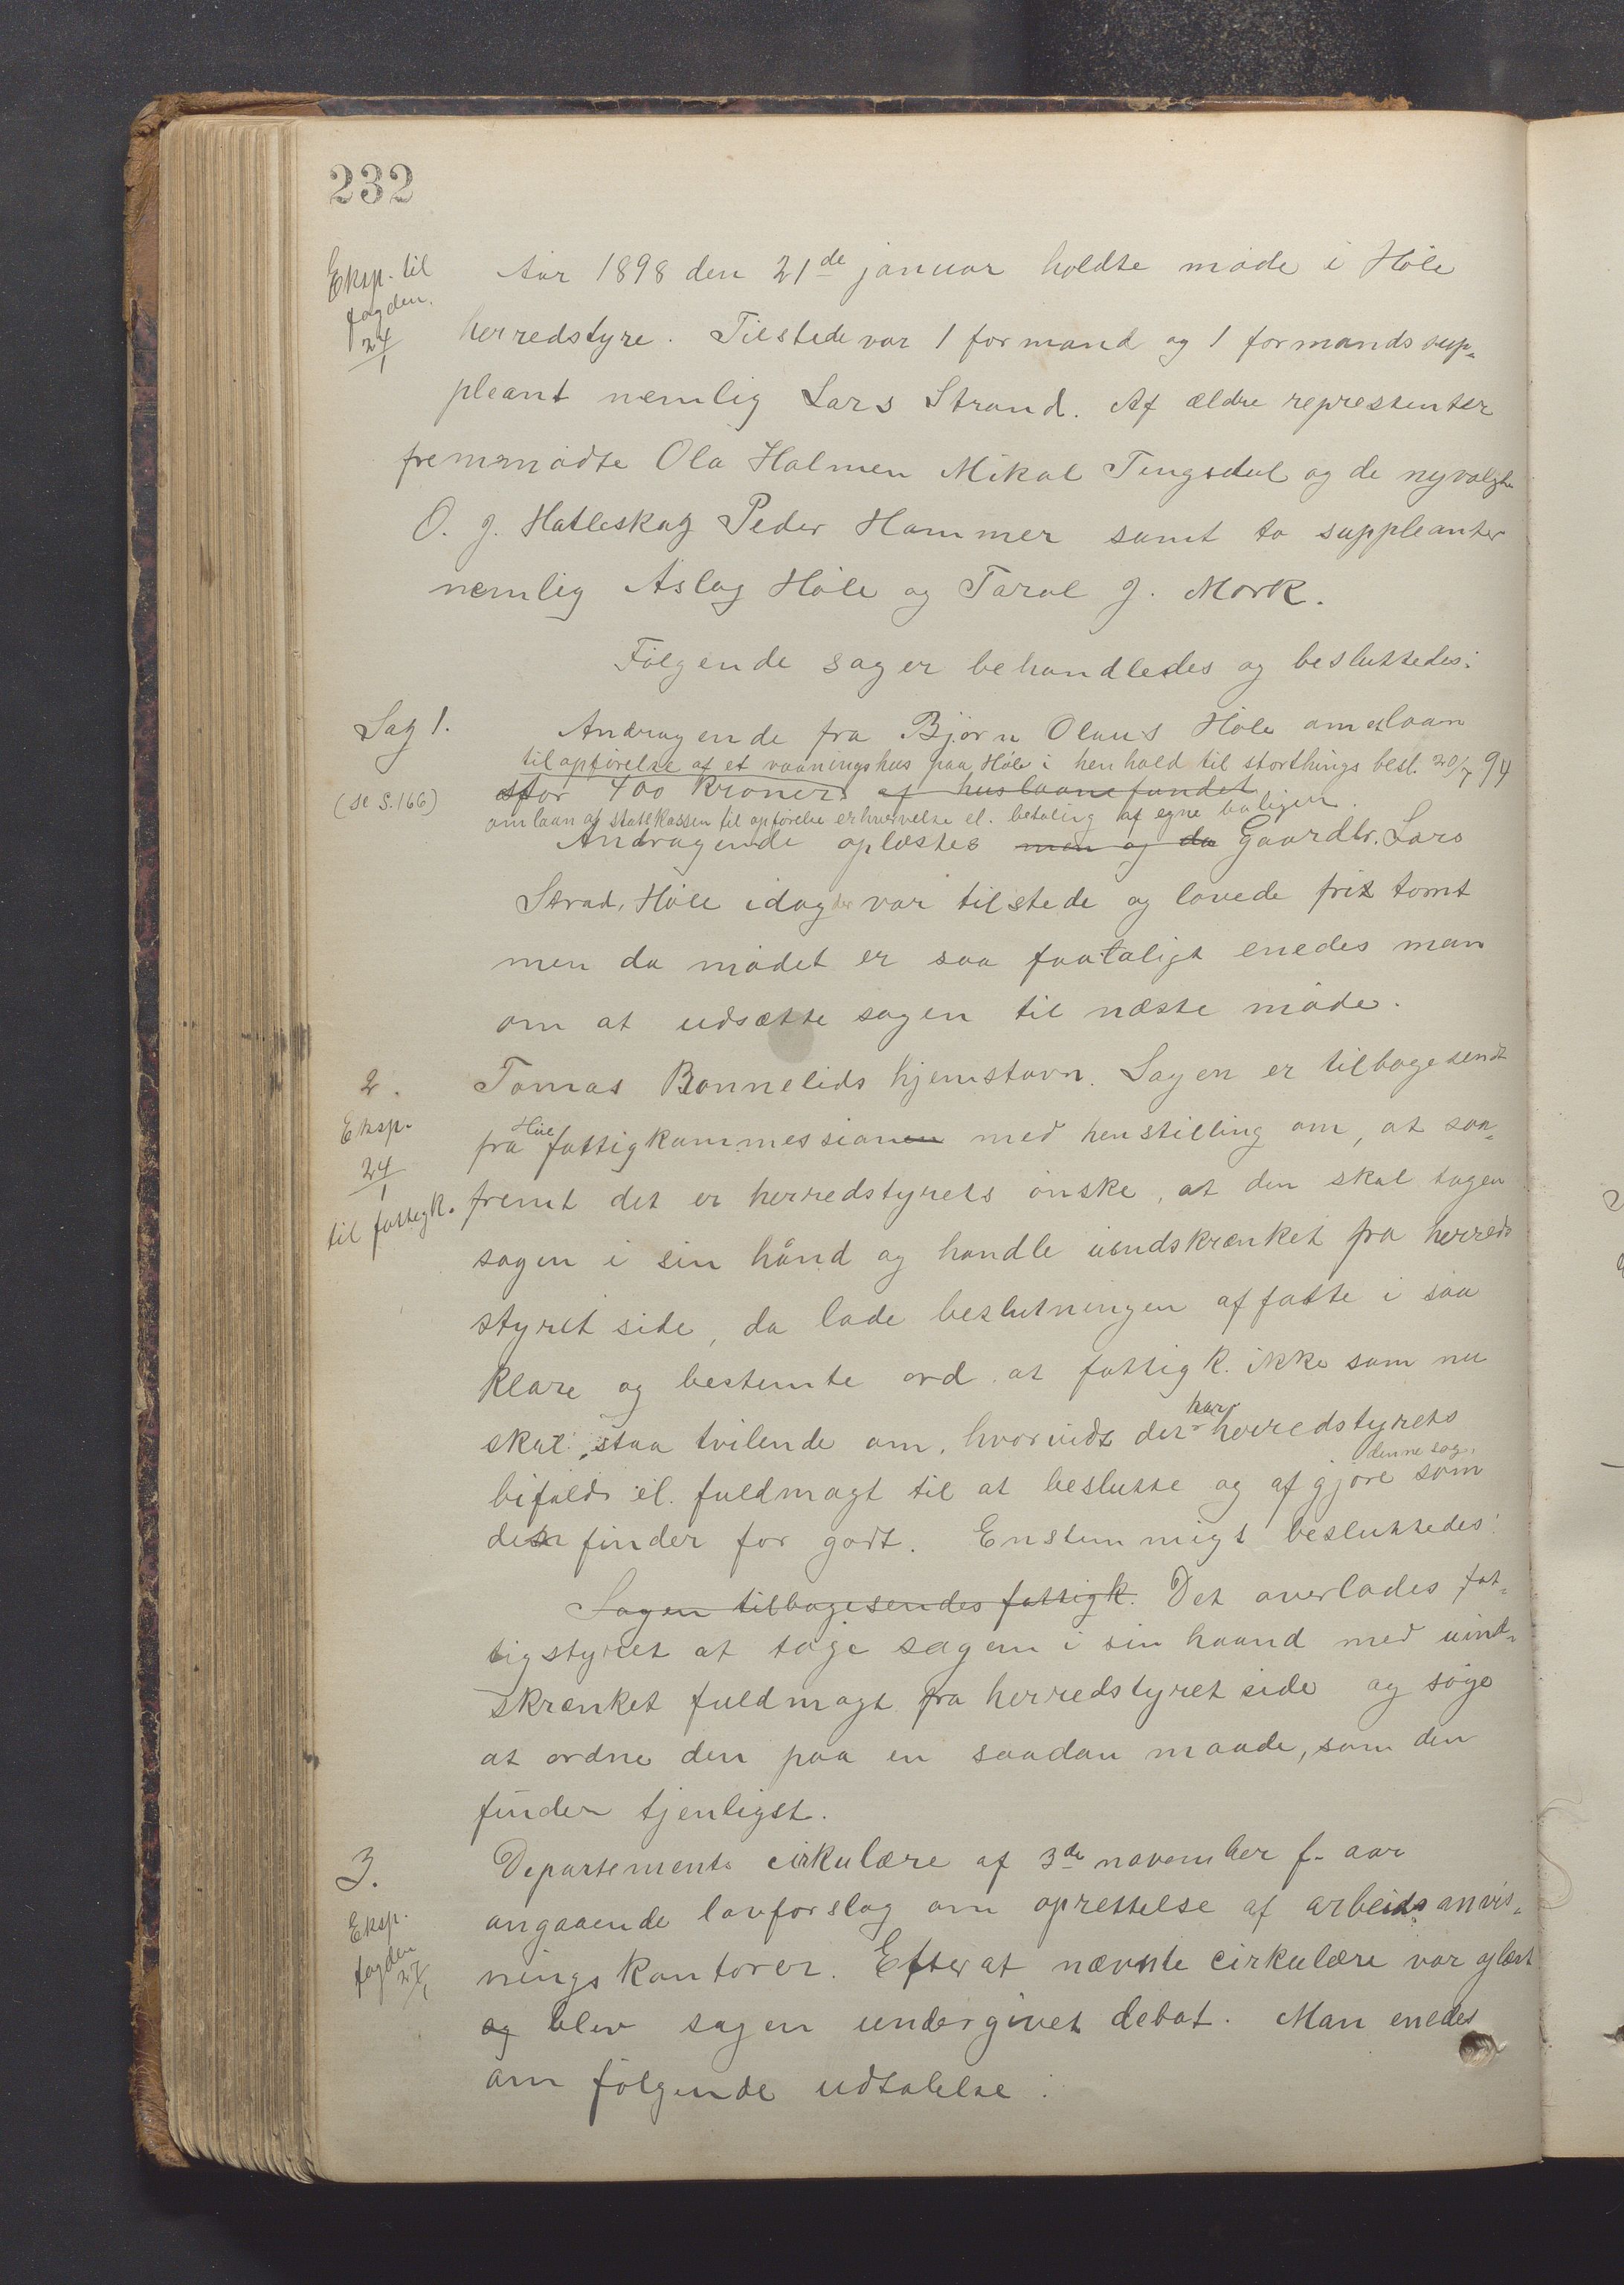 232
Eksp. til
fogden.
24/1
Aar 1898 den 21de januar holdte møde i Høle
herredstyre. Tilstede var 1 formand og 1 formandssup-
pleant nemlig Lars Strand. Af ældre representer
fremmødte Ola Halmen Mikal Tengsdal og de nyvalgte
O. J. Hatleskag Peder Hammer samt to suppleanter
nemlig Aslag Høle og Taral J. Mork.
Følgende sager behandledes og besluttedes:
Sag 1.
(se S. 166)
Andragende fra Bjørn Olaus Høle om et laan
til opførelse af et vaaningshus paa Høle i henhold til storthings besl. 20/7 94
stor 400 kroner af huslaanefondet
om laan af statskassen til opførelse erhvervelse el. betaling af egne boliger.
Andragende oplæstes men og da Gaardbr. Lars
Strad, Høle idag der var tilstede og lovede frit tomt
men da mødet er saa faataligt enedes man
om at udsætte sagen til næste møde.
2.
Eksp.
24/1
til fattigk.
Tomas Bonnelids hjemstavn. Sagen er tilbagesendt
fra Høle fattigkommessionen med henstilling om, at saa-
fremt det er herredstyrets ønske, at den skal tagen
sagen i sin hånd og handle uindskrænket fra herreds
styret side, da lade beslutningen affatte i saa
klare og bestemte ord at fattigk. ikke som nu
skal staa tvilende om, hvorvidt der har herredstyrets
bifald el. fuldmagt til at beslutte og afgjøre denne sag, som
den finder for godt. Enstemmigt besluttedes:
Sagen tilbagesendes fattigk. Det overlades fat-
tigstyret at tage sagen i sin haand med uind-
skrænket fuldmagt fra herredstyret side og søge
at ordne den paa en saadan maade, som den
finder tjenligst.
3.
Eksp.
fogden
24/1
Departements cirkulære af 3de november f. aar
angaaende lovforslag om oprettelse af arbeidsanvis-
ningskontorer. Efter at nævnte cirkulære var oplæst
og blev sagen undergivet debat. Man enedes
om følgende udtalelse: